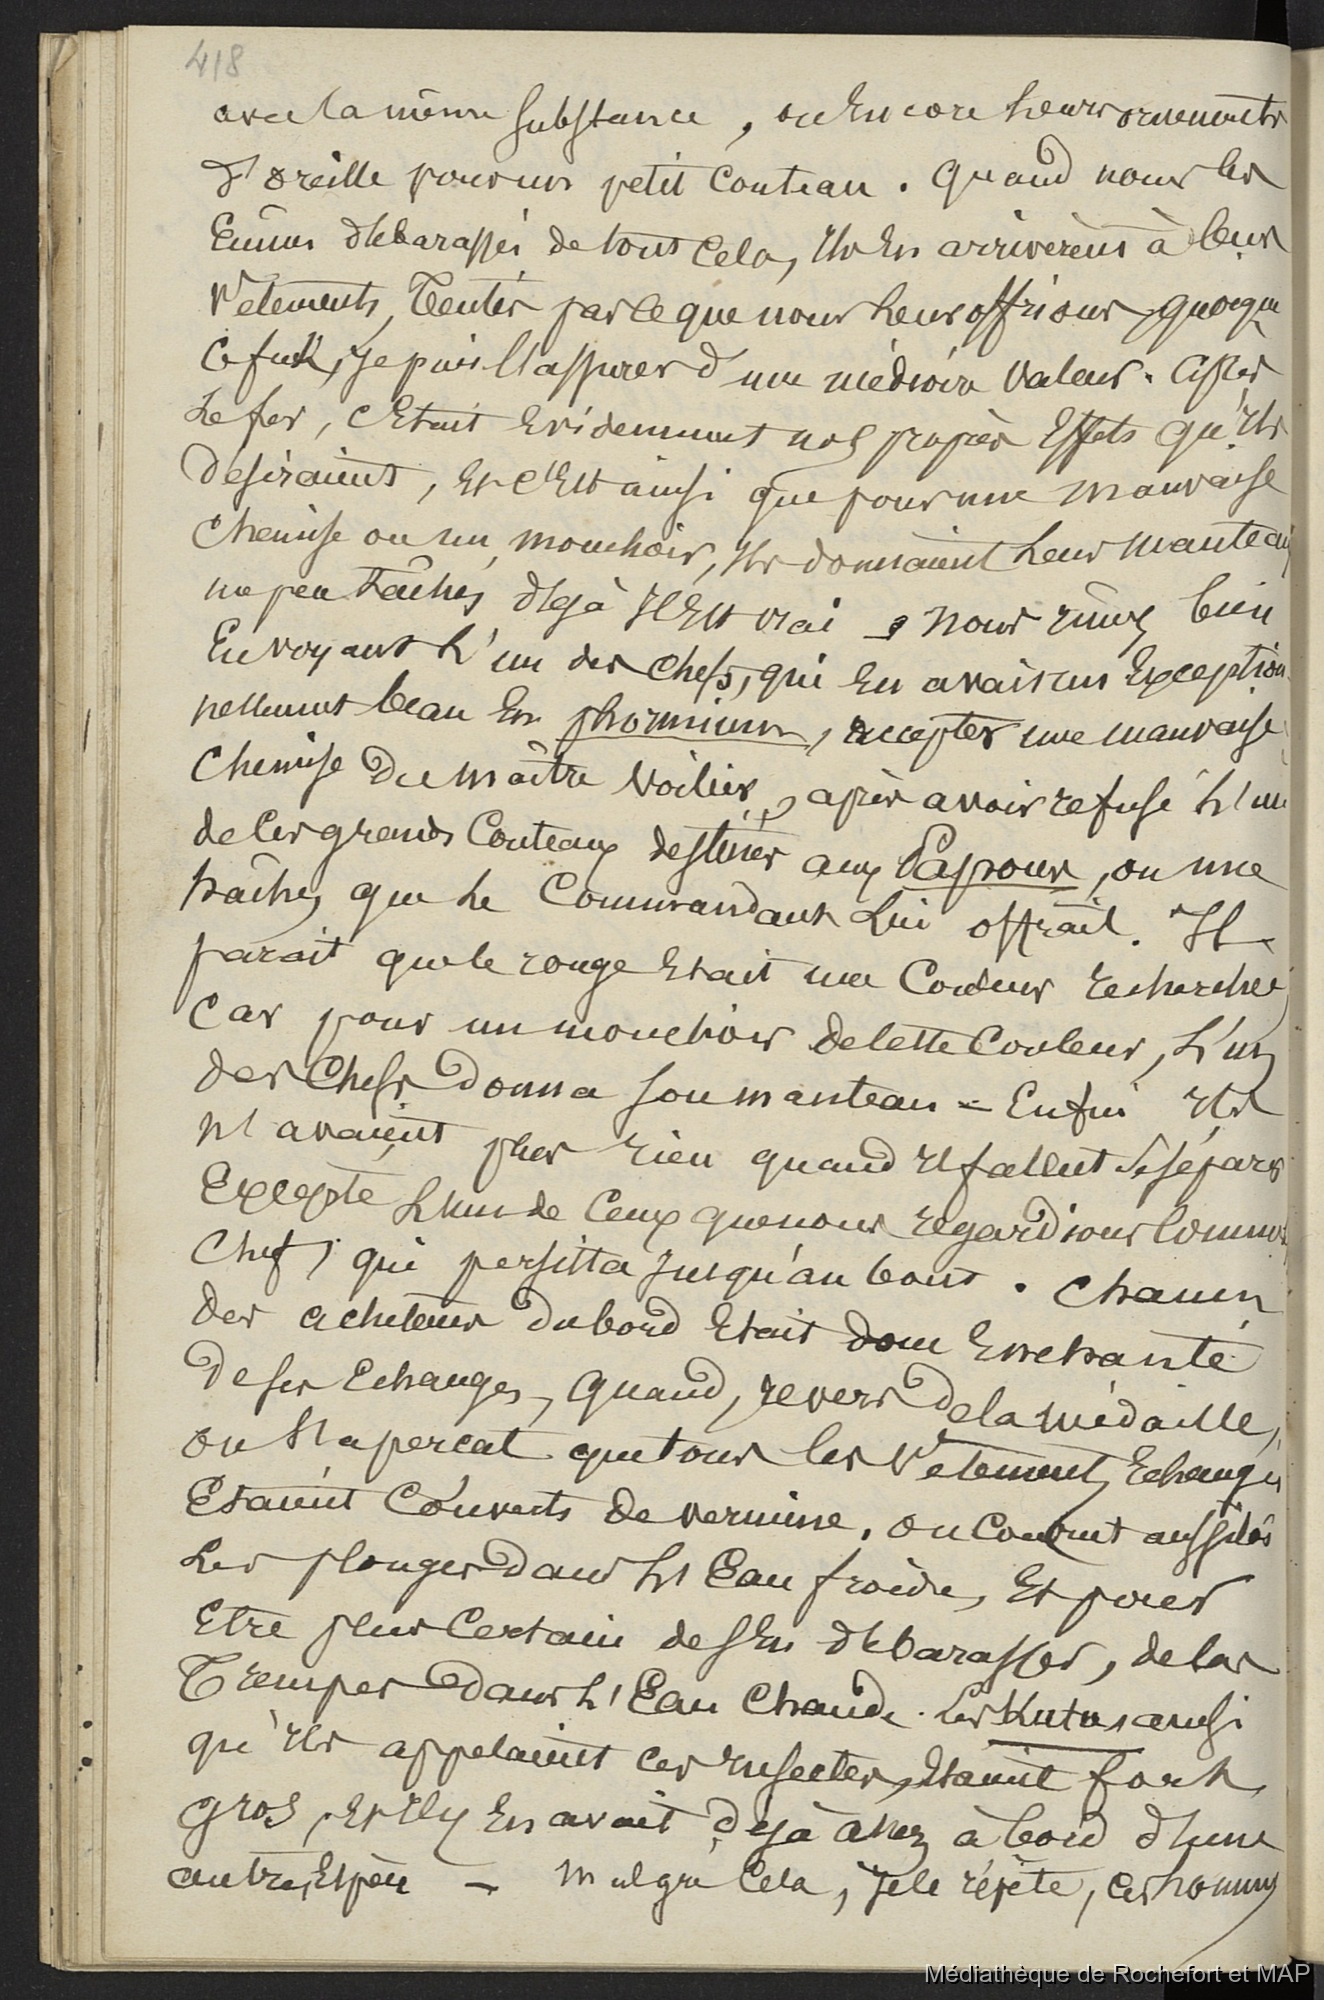 418
avec la même substance, ou encore leurs ornements
d'oreille pour un petit Couteau. Quand nous les
eûmes débarassés de tout cela, ils en arrivèrent à leurs
Vêtements, tentés par ce que nous leur offrions, quoique
ce fut, je puis l'assurer d'une médiocre valeur. Après
le fer, c'était évidemment nos propres effets qu'ils
désiraient, et c'est ainsi que pour une mauvaise
chemise ou un mouchoir, ils donnaient leur manteau
un peu tâchés déjà il est vrai, nous rîmes bien
en voyant l'un des chefs, qui en avait un exception
nellement beau en phormium, accepter une mauvaise
chemise du maître voilier, après avoir refusé l'un
de ces grands Couteaux destinés aux Papous, ou une
hâche, que le Commandant lui offrait. Il
parait que le rouge était une Couleur recherchée,
car pour un mouchoir de cette Couleur, l'un
des Chefs donna son manteau = Enfin ils
n'avaient plus rien quand il fallut se séparer
Excepté l'un de ceux que nous regardions comme
Chef, qui persista jusqu'au bout. Chacun
des acheteurs du bord était donc enchanté
de ses échanges, quand, revers de la médaille,
on s'aperçut que tous les Vêtements échangés
étaient couverts de vermine. on courut aussitôt
les plonger dans l'Eau froide, et pour
être plus certain de s'en débarasser, de les
tremper dans l'Eau chaude. les Kutus ainsi
qu'ils appelaient ces insectes, étaient fort
gros, et il y en avait déjà assez à bord d'une
autre espèce — Malgré cela, je le répète, ces hommes
Médiathèque de Rochefort et MAP